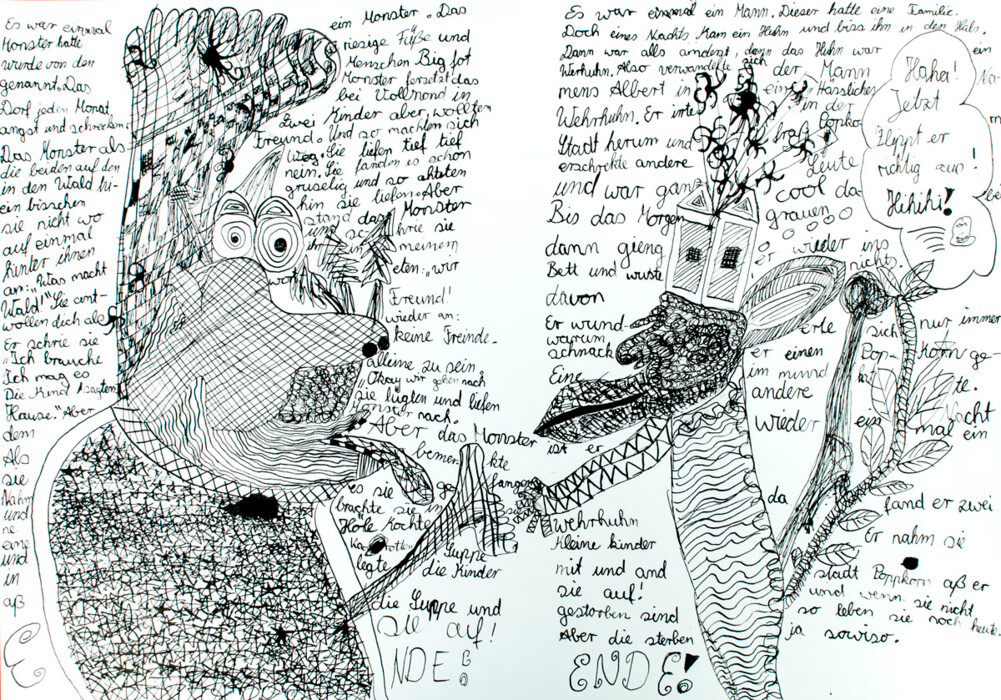 Es war einmal ein Monster. Das
Monster hatte riesige Füße und
wurde von den Menschen Big fot
genannt. Das Monster fersetzt das
Dorf jeden Monat bei Vollmond in
angst und schrecken. Zwei Kinder aber wollten
Das Monster als Freund. Und so machten sich
die beiden auf den Weg. Sie liefen tief tief
in den Wald hi- nein. Sie fanden es schon
ein bisschen gruselig und so achteten
sie nicht wo hin sie liefen. Aber
auf einmal stand das Monster
hinter ihnen und schrie sie
an: „Was macht ihr in meinem
Wald!" Sie ant- eten: „wir
wollen dich als Freund!
Er schrie sie wieder an:
„Ich brauche keine Freinde
Ich mag es alleine zu sein
Die Kind sagten „Okay wir gehen nach
Hause." Aber sie lügten und liefen
dem onster nach.
Als Aber das Monster
sie bemer kte
es sie ge fangen
Nahm brachte sie in
und Höle Kochte
ne Ka rotten Suppe
eine legte die Kinder
und
in die Suppe und
aß sie auf!
ENDE!
Es war einmal ein Mann. Dieser hatte eine Familie.
Doch eines Nachts kam ein Huhn und biss ihn in den Hals.
Dann war alls anderst, denn das Huhn war ein
Werhuhn. Also verwandelte sich der Mann
mens Albert in ein Hässliches
Wehrhuhn. Er irte in der
Stadt herum und fraß Popko rn
erschrekte andere Leute
und war ganz cool da
Bis das Morgen grauen
dann gieng er wieder ins
Bett und wuste nichts.
davon
Er wund- erte sich nur immer
warum er einen Pop- korn ge-
schmack im mund te.
Eine andere Nacht
ist er wieder ein mal ein
Wehrhuhn da fand er zwei
Kleine kinder Er nahm sie
mit und and stadt Poppkorn aß er
sie auf! und wenn sie nicht
gestorben sind so leben sie noch heute.
Aber die sterben ja sowiso.
ENDE!
Haha!
Jetzt
flyppt er
richtig aus!
Hihihi!